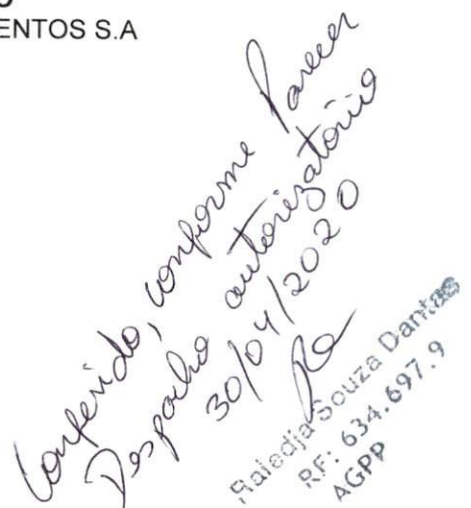 ENTOS S.A
Conferido, conforme Parecer
Despacho autorizatório
30/04/2020
Raiedja Souza Dantas
RF: 634.697.9
AGPP